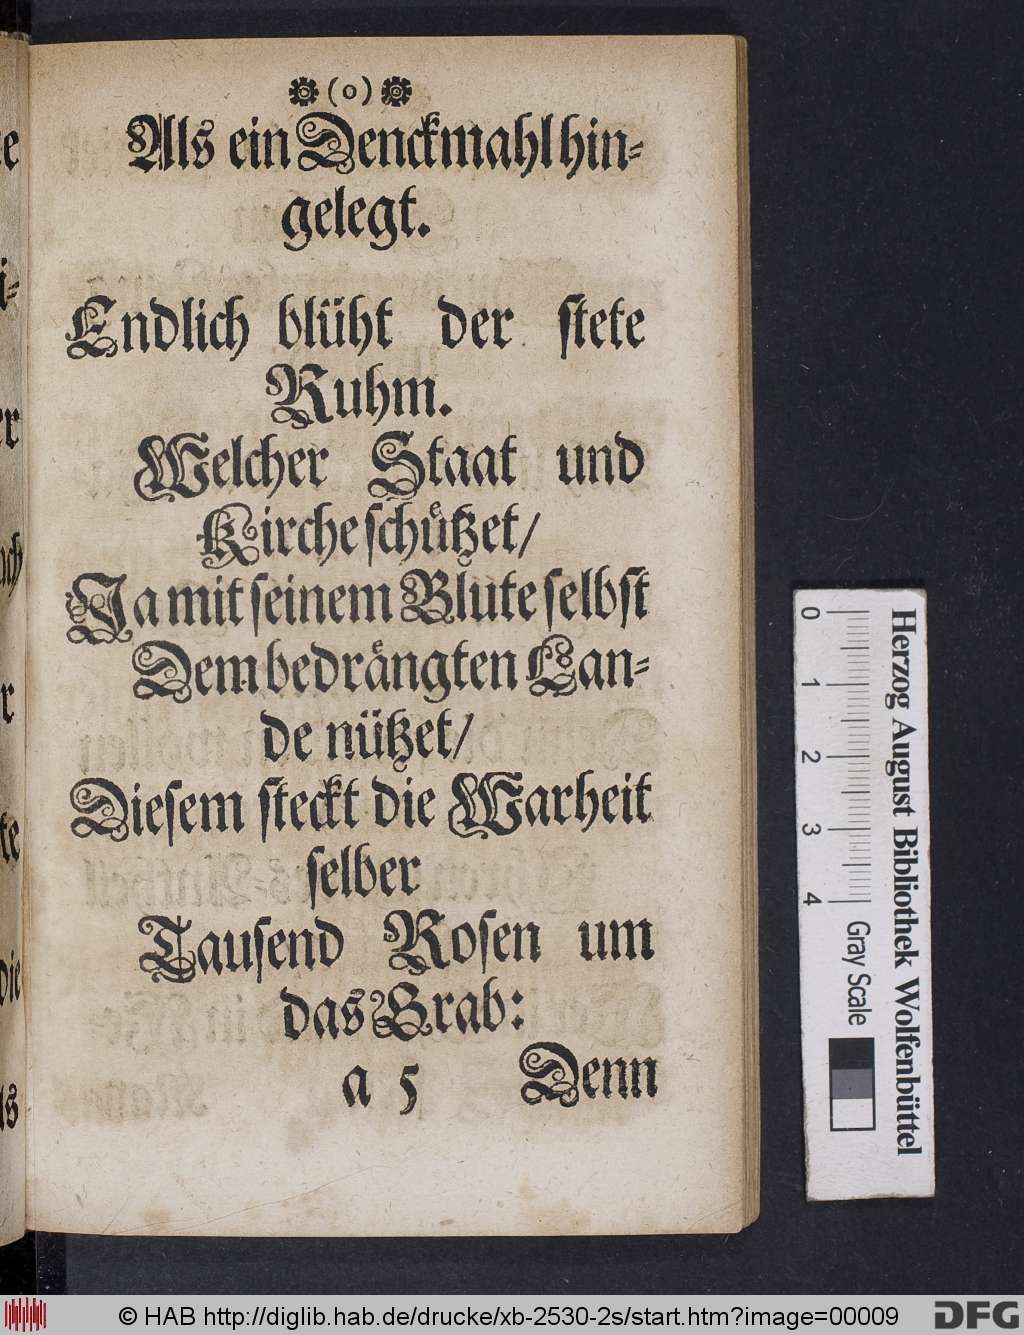 (o)
Als ein Denckmahl hin-
gelegt.
Endlich blüht der stete
Ruhm.
Welcher Staat und
Kirche schützet/
Ja mit seinem Blute selbst
Dem bedrängten Lan-
de nützet/
Diesem steckt die Warheit
selber
Tausend Rosen um
das Grab:
a 5 Denn
0 1 2 3 4 Gray Scale
Herzog August Bibliothek Wolfenbüttel
© HAB http://diglib.hab.de/drucke/xb-2530-2s/start.htm?image=00009
DFG